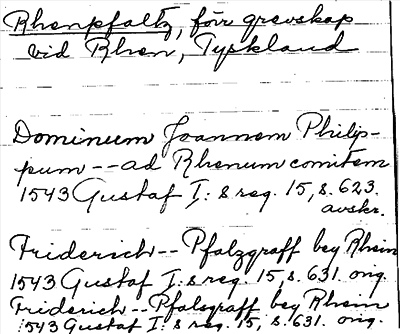 Rhenpfaltz, förr grevskap
vid Rhen, Tyskland
Dominum Joannem Philip-
pum -- ad Rhenum comitem
1543 Gustaf I:s reg. 15, s. 623.
avskr.
Friderich -- Pfalzgraff bey Rhein
1543 Gustaf I:s reg. 15, s. 631. orig.
Friderich -- Pfalsgraff bey Rhein
1543 Gustaf I:s reg. 15, s. 631. orig.